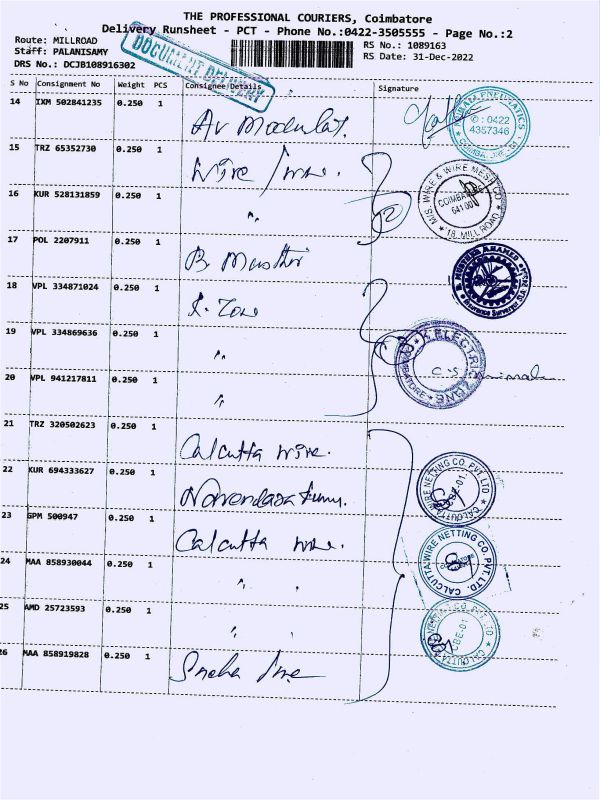 THE PROFESSIONAL COURIERS, Coimbatore
Delivery Runsheet - PCT - Phone No.:0422-3505555 - Page No.:2
Route: MILLROAD
Staff: PALANISAMY
DRS No.: DCJB108916302
RS No.: 1089163
RS Date: 31-Dec-2022
DOCUMENT DELIVERY
S No Consignment No Weight PCS Consignee Details Signature
14 IXM 502841235 0.250 1
PNEUMATICS
✆ : 0422
4357346
15 TRZ 65352730 0.250 1 Wire /
16 KUR 528131859 0.250 1 "
M/S. WIRE & WIRE MESH CO
COIMBATORE
641 001
18, MILL ROAD
17 POL 2207911 0.250 1 B.
18 VPL 334871024 0.250 1 K. Zone
19 VPL 334869636 0.250 1 "
K ELECTRI ZONE
20 VPL 941217811 0.250 1 "
21 TRZ 320502623 0.250 1 Calcutta wire.
22 KUR 694333627 0.250 1
CALCUTTA WIRE NETTING CO. PVT LTD
CBE-01.
23 GPM 500947 0.250 1 Calcutta wire.
CALCUTTA WIRE NETTING CO. PVT. LTD.
24 MAA 858930044 0.250 1 " "
25 AMD 25723593 0.250 1 " "
CALCUTTA NETTING CO PVT LTD
CBE-01
26 MAA 858919828 0.250 1 Sneha